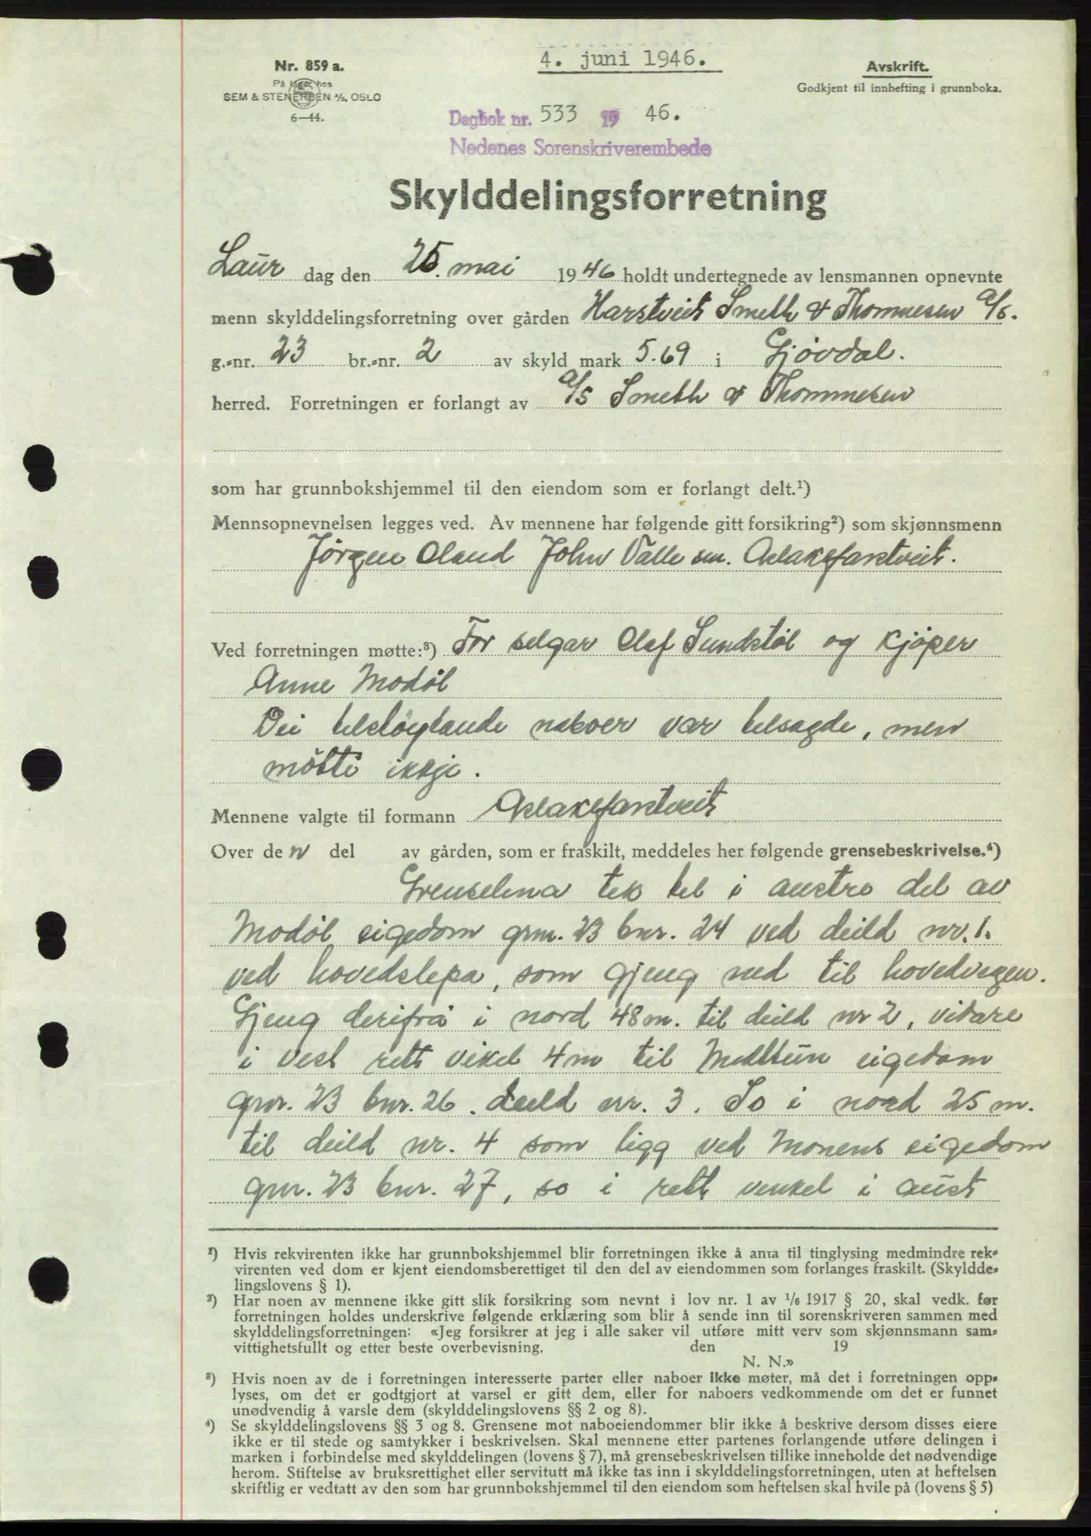 Nr. 859 a.
På lager hos
SEM & STENERSEN A/S, OSLO
6—44.
4. juni 1946.
Avskrift.
Godkjent til innhefting i grunnboka.
Dagbok nr. 533 19 46.
Nedenes Sorenskriverembede
Skylddelingsforretning
Laur dag den 25. mai 1946 holdt undertegnede av lensmannen opnevnte
menn skylddelingsforretning over gården Harstveit Smeth & Thommesen a/s.
g.-nr. 23 br.-nr. 2 av skyld mark 5.69 i Gjøvdal.
herred. Forretningen er forlangt av a/s Smeth & Thommesen
som har grunnbokshjemmel til den eiendom som er forlangt delt.¹)
Mennsopnevnelsen legges ved. Av mennene har følgende gitt forsikring²) som skjønnsmenn
Jørgen Oland John Valle sen. Aslak Harstveit.
Ved forretningen møtte:³) For selgar Olef Sundstøl og kjøper
Anne Modøl
Dei tilstøytande naboer var tilsagde, men
møtti ikkje.
Mennene valgte til formann Aslak Harstveit
Over den del av gården, som er fraskilt, meddeles her følgende grensebeskrivelse.⁴)
Grenselina tek til i austre del av
Modøl eigedom grnr. 23 bnr. 24 ved deild nr. 1.
ved hovedslepa, som gjeng ned til hovedvegen.
Gjeng derifrå i nord 48 m. til deild nr 2, vidare
i vest rett vikel 4 m til Medltun eigedom
gnr. 23 bnr. 26. deild nr. 3. So i nord 25 m.
til deild nr. 4 som ligg ved Monens eigedom
gnr. 23 bnr. 27, so i rett venkel i aust
¹) Hvis rekvirenten ikke har grunnbokshjemmel blir forretningen ikke å anta til tinglysing medmindre rek-
virenten ved dom er kjent eiendomsberettiget til den del av eiendommen som forlanges fraskilt. (Skyldde-
lingslovens § 1).
²) Har noen av mennene ikke gitt slik forsikring som nevnt i lov nr. 1 av 1/6 1917 § 20, skal vedk. før
forretningen holdes underskrive følgende erklæring som blir å sende inn til sorenskriveren sammen med
skylddelingsforretningen: «Jeg forsikrer at jeg i alle saker vil utføre mitt verv som skjønnsmann sam-
vittighetsfullt og etter beste overbevisning. den 19
N. N.»
³) Hvis noen av de i forretningen interesserte parter eller naboer ikke møter, må det i forretningen opp-
lyses, om det er godtgjort at varsel er gitt dem, eller for naboers vedkommende om det er funnet
unødvendig å varsle dem (skylddelingslovens §§ 2 og 8).
⁴) Se skylddelingslovens §§ 3 og 8. Grensene mot naboeiendommer blir ikke å beskrive dersom disses eiere
ikke er til stede og samtykker i beskrivelsen. Skal mennene etter partenes forlangende utføre delingen i
marken i forbindelse med skylddelingen (lovens § 7), må grensebeskrivelsen tillike inneholde det nødvendige
herom. Stiftelse av bruksrettighet eller servitutt må ikke tas inn i skylddelingsforretningen, uten at heftelsen
skriftlig er vedtatt av den som har grunnbokshjemmel til den eiendom som heftelsen skal hvile på (lovens § 5)